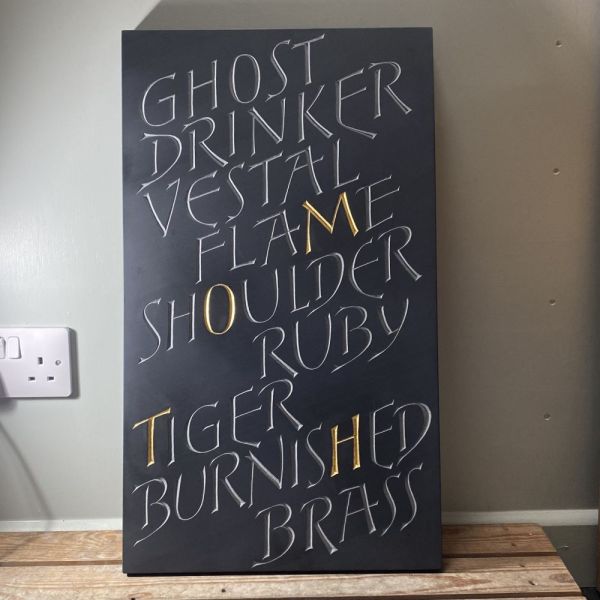 GHOST
DRINKER
VESTAL
FLAME
SHOULDER
RUBY
TIGER
BURNISHED
BRASS